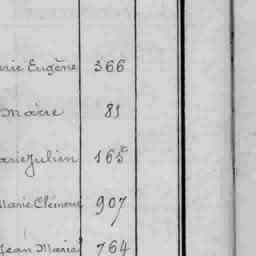 arie Eugène 366
Marie 81
arie Julien 165
Marie Clémence 907
Jean Marie 764